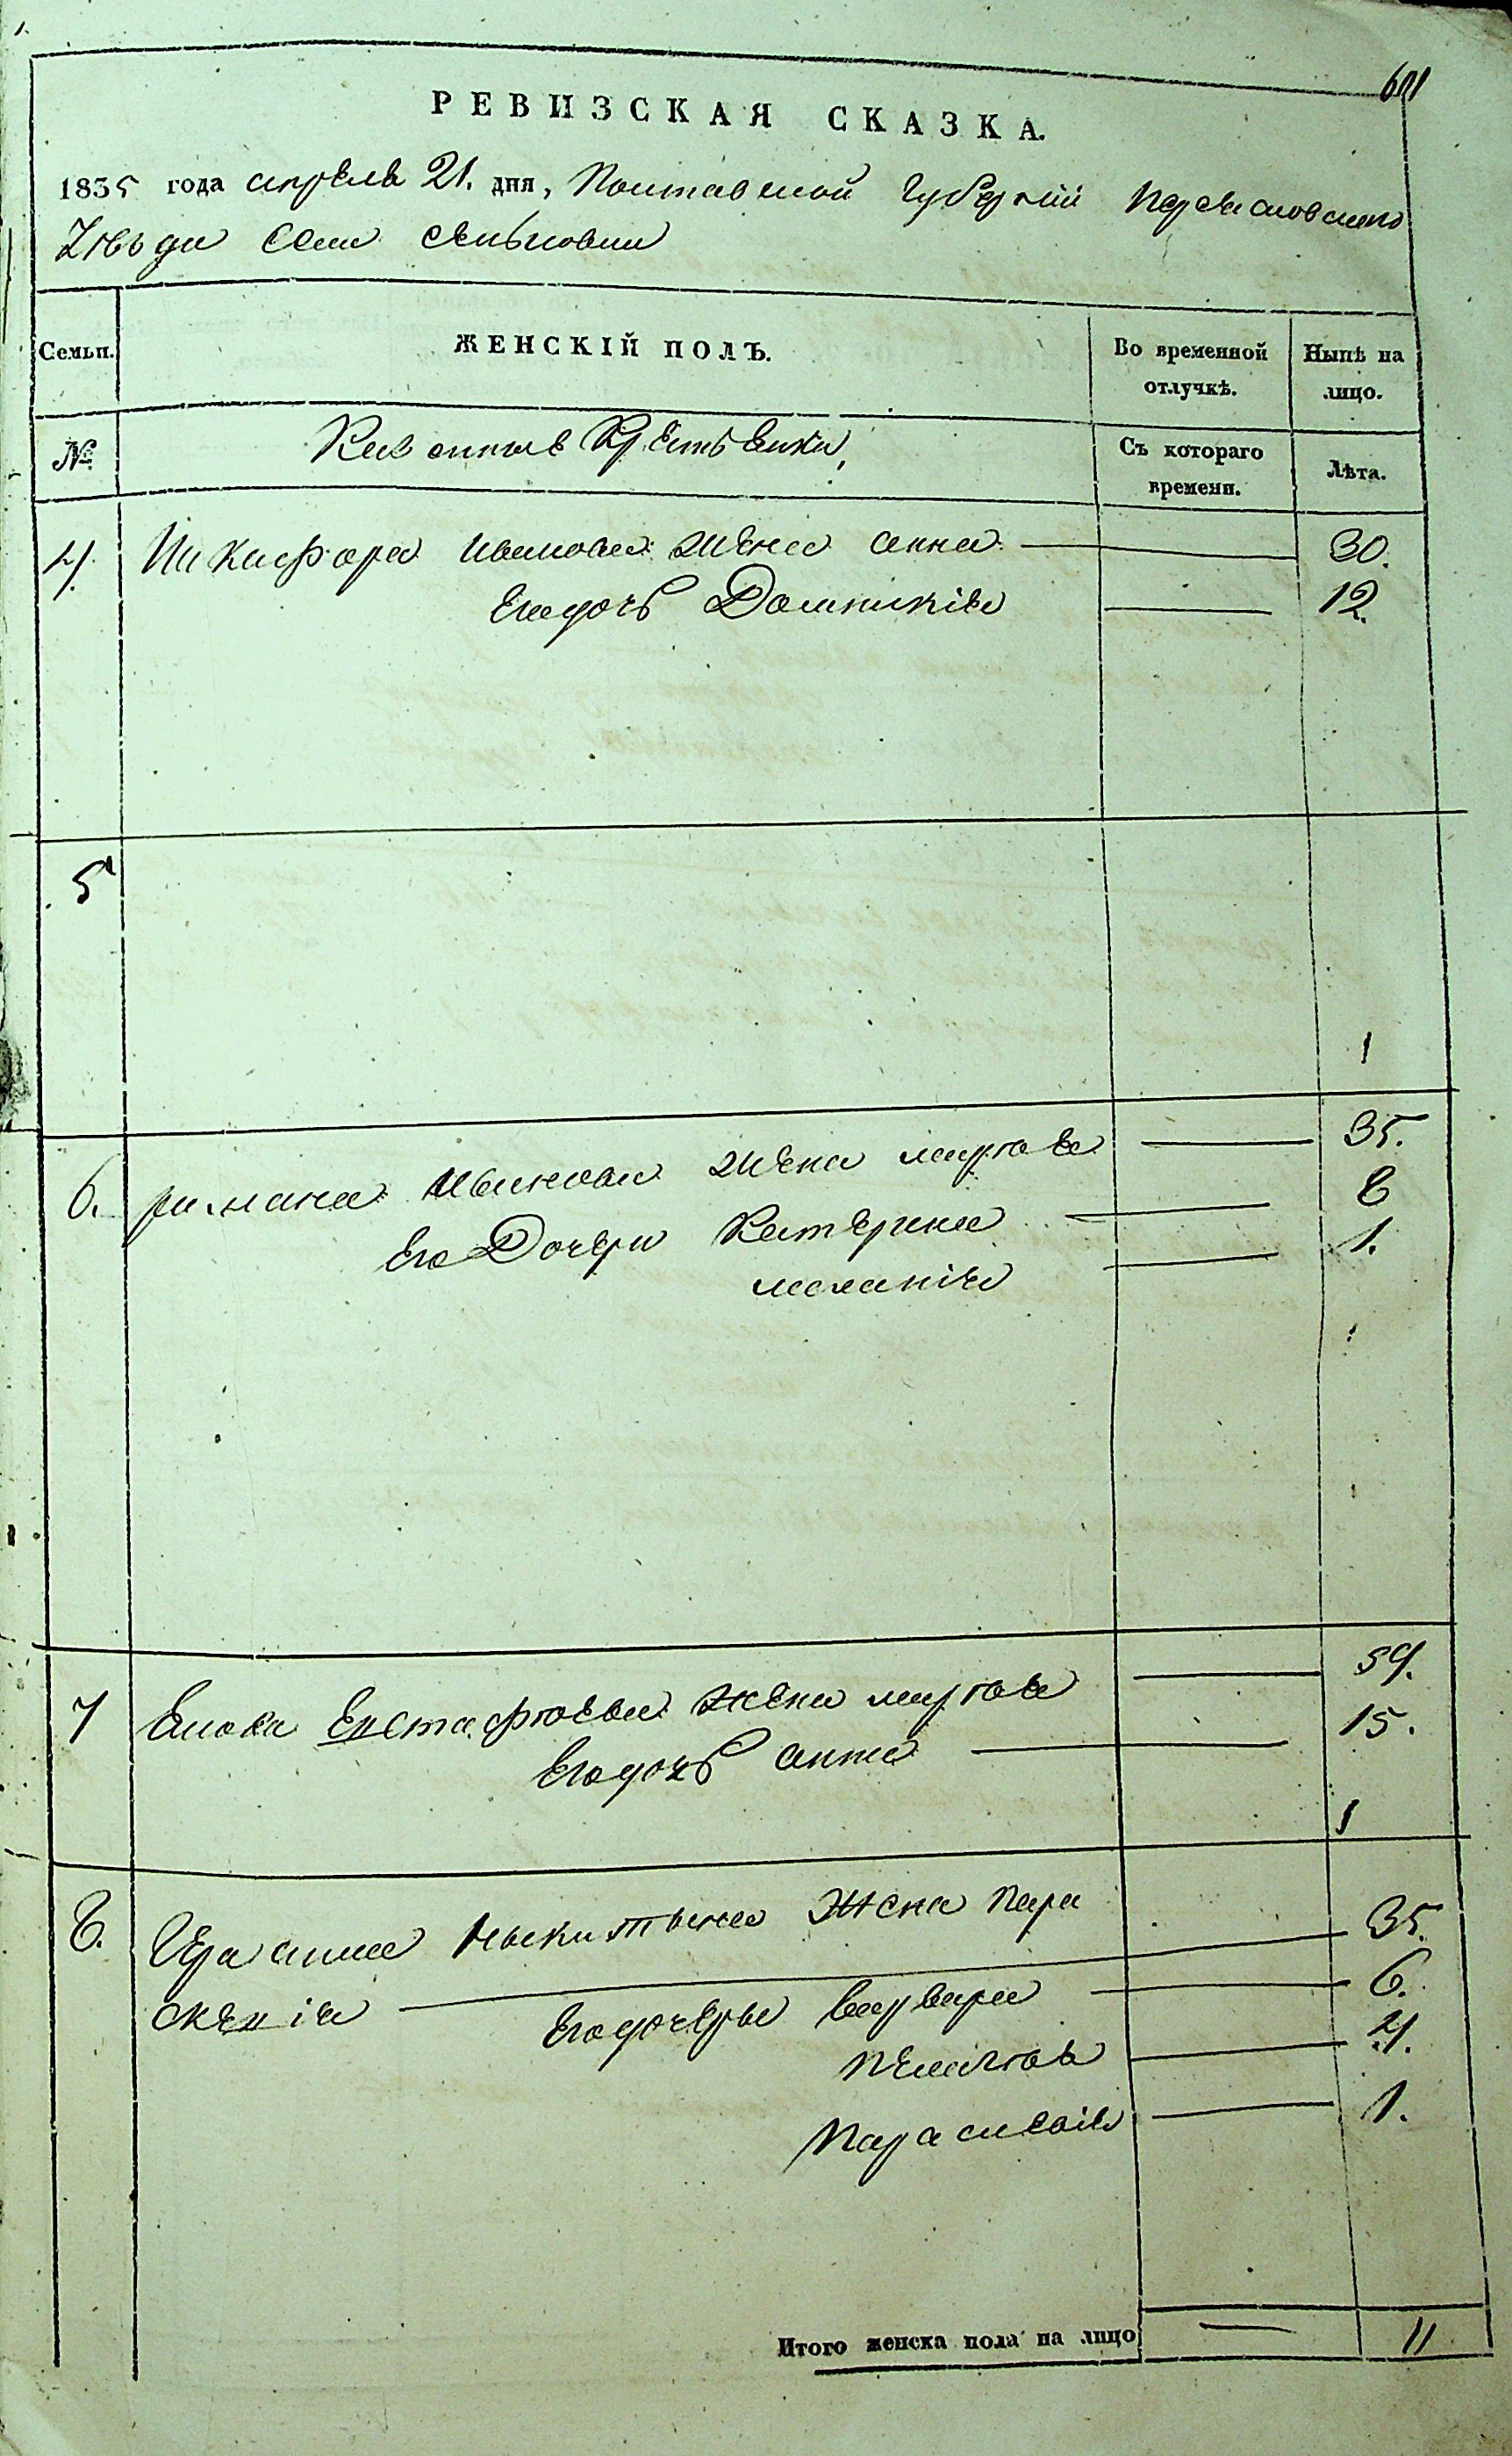 РЕВИЗСКАЯ СКАЗКА.
1835 года апреля 21. дня, Полтавской Губернии Переясловского
Уезда Села
Семьи.
ЖЕНСКІЙ ПОЛЪ.
Во временной
отлучкѣ.
Нынѣ на
лицо.
№
Казенныя Крестьянки,
Съ котораго
времени.
Лѣта.
4. Никифора Иванова жена анна 30.
Его дочь Домникія 12.
5
1
6. романа Иванова жена марфа 35.
Его Дочери Катерина 8
маланія 1.
7 Евстафіова жена марфа 59.
Его дочь анна 15.
1
8. Герасима Никитина Жена Пара
скевія 35.
Его дочери варвара 6.
Пелагея 4.
Параскевія 1.
Итого женска пола на лицо 11